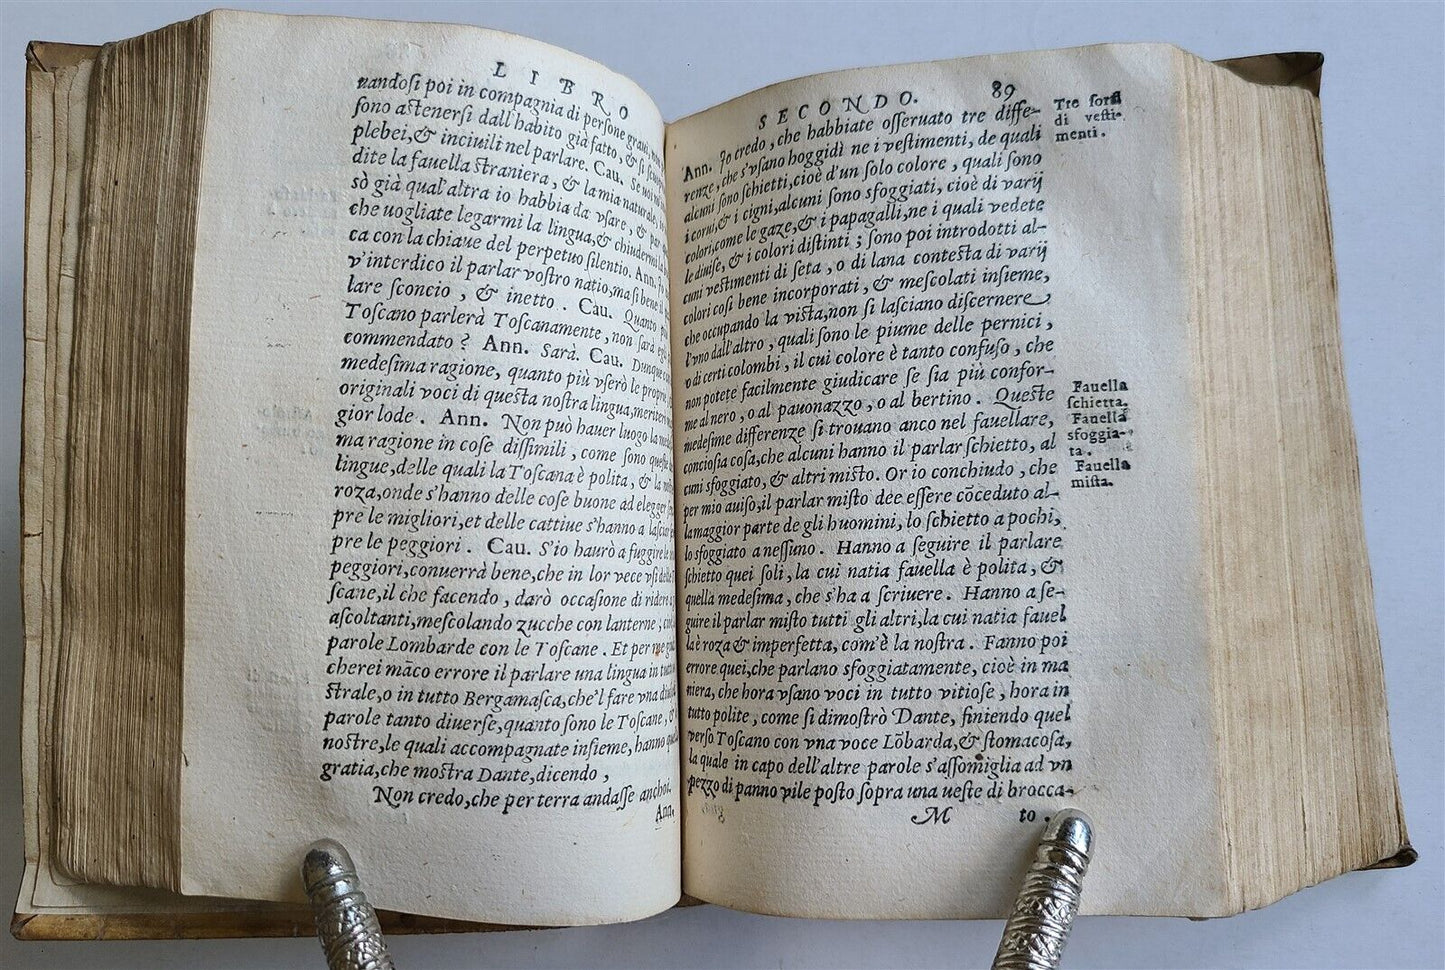 LIBRO
nandosi poi in compagnia di persone graui,
sono astenersi dall'habito già fatto, & si
plebei, & inciuili nel parlare. Cau. Se uoi
dite la fauella straniera, & la mia naturale,
sò già qual'altra io habbia da vsare, & par
che uogliate legarmi la lingua, & chiudermi la
ca con la chiaue del perpetuo silentio. Ann.
v'interdico il parlar vostro natio, ma si bene il
lare sconcio, & inetto. Cau. Quanto
Toscano parlerà Toscanamente, non sarà
commendato? Ann. Sarà. Cau. Dunque
medesima ragione, quanto più vserò le proprie,
originali voci di questa nostra lingua, meriterò
gior lode. Ann. Non può hauer luogo la
ma ragione in cose dissimili, come sono queste
lingue, delle quali la Toscana è polita, & la
roza, onde s'hanno delle cose buone ad elegger
pre le migliori, et delle cattiue s'hanno a lasciar
pre le peggiori. Cau. S'io haurò a fuggire le
peggiori, conuerrà bene, che in lor vece vsi delle
scane, il che facendo, darò occasione di ridere
ascoltanti, mescolando zucche con lanterne,
parole Lombarde con le Toscane. Et per me
cherei māco errore il parlare una lingua in tutto
strale, o in tutto Bergamasca, che'l fare vna
parole tanto diuerse, quanto sono le Toscane,
nostre, le quali accompagnate insieme, hanno
gratia, che mostra Dante, dicendo,
Non credo, che per terra andasse anchoi.
Ann.
SECONDO. 89
Ann. Io credo, che habbiate osseruato tre diffe-
renze, che s'vsano hoggidì ne i vestimenti, de quali
alcuni sono schietti, cioè d'un solo colore, quali sono
i corui, & i cigni, alcuni sono sfoggiati, cioè di varij
colori, come le gaze, & i papagalli, ne i quali vedete
le diuise, & i colori distinti; sono poi introdotti al-
cuni vestimenti di seta, o di lana contesta di varij
colori cosi bene incorporati, & mescolati insieme,
che occupando la vista, non si lasciano discernere
l'vno dall'altro, quali sono le piume delle pernici,
o di certi colombi, il cui colore è tanto confuso, che
non potete facilmente giudicare se sia più confor-
me al nero, o al pauonazzo, o al bertino. Queste
medesime differenze si trouano anco nel fauellare,
conciosia cosa, che alcuni hanno il parlar schietto, al
cuni sfoggiato, & altri misto. Or io conchiudo, che
per mio auiso, il parlar misto dee essere cōceduto al-
la maggior parte de gli huomini, lo schietto a pochi,
lo sfoggiato a nessuno. Hanno a seguire il parlare
schietto quei soli, la cui natia fauella è polita, &
quella medesima, che s'ha a scriuere. Hanno a se-
guire il parlar misto tutti gli altri, la cui natia fauel
la è roza & imperfetta, com'è la nostra. Fanno poi
errore quei, che parlano sfoggiatamente, cioè in ma
niera, che hora vsano voci in tutto vitiose, hora in
tutto polite, come si dimostrò Dante, finiendo quel
verso Toscano con vna voce Lōbarda, & stomacosa,
la quale in capo dell'altre parole s'assomiglia ad vn
pezzo di panno vile posto sopra una ueste di brocca-
M to.
Tre sorti
di vesti-
menti.
Fauella
schietta.
Fauella
sfoggia-
ta.
Fauella
mista.